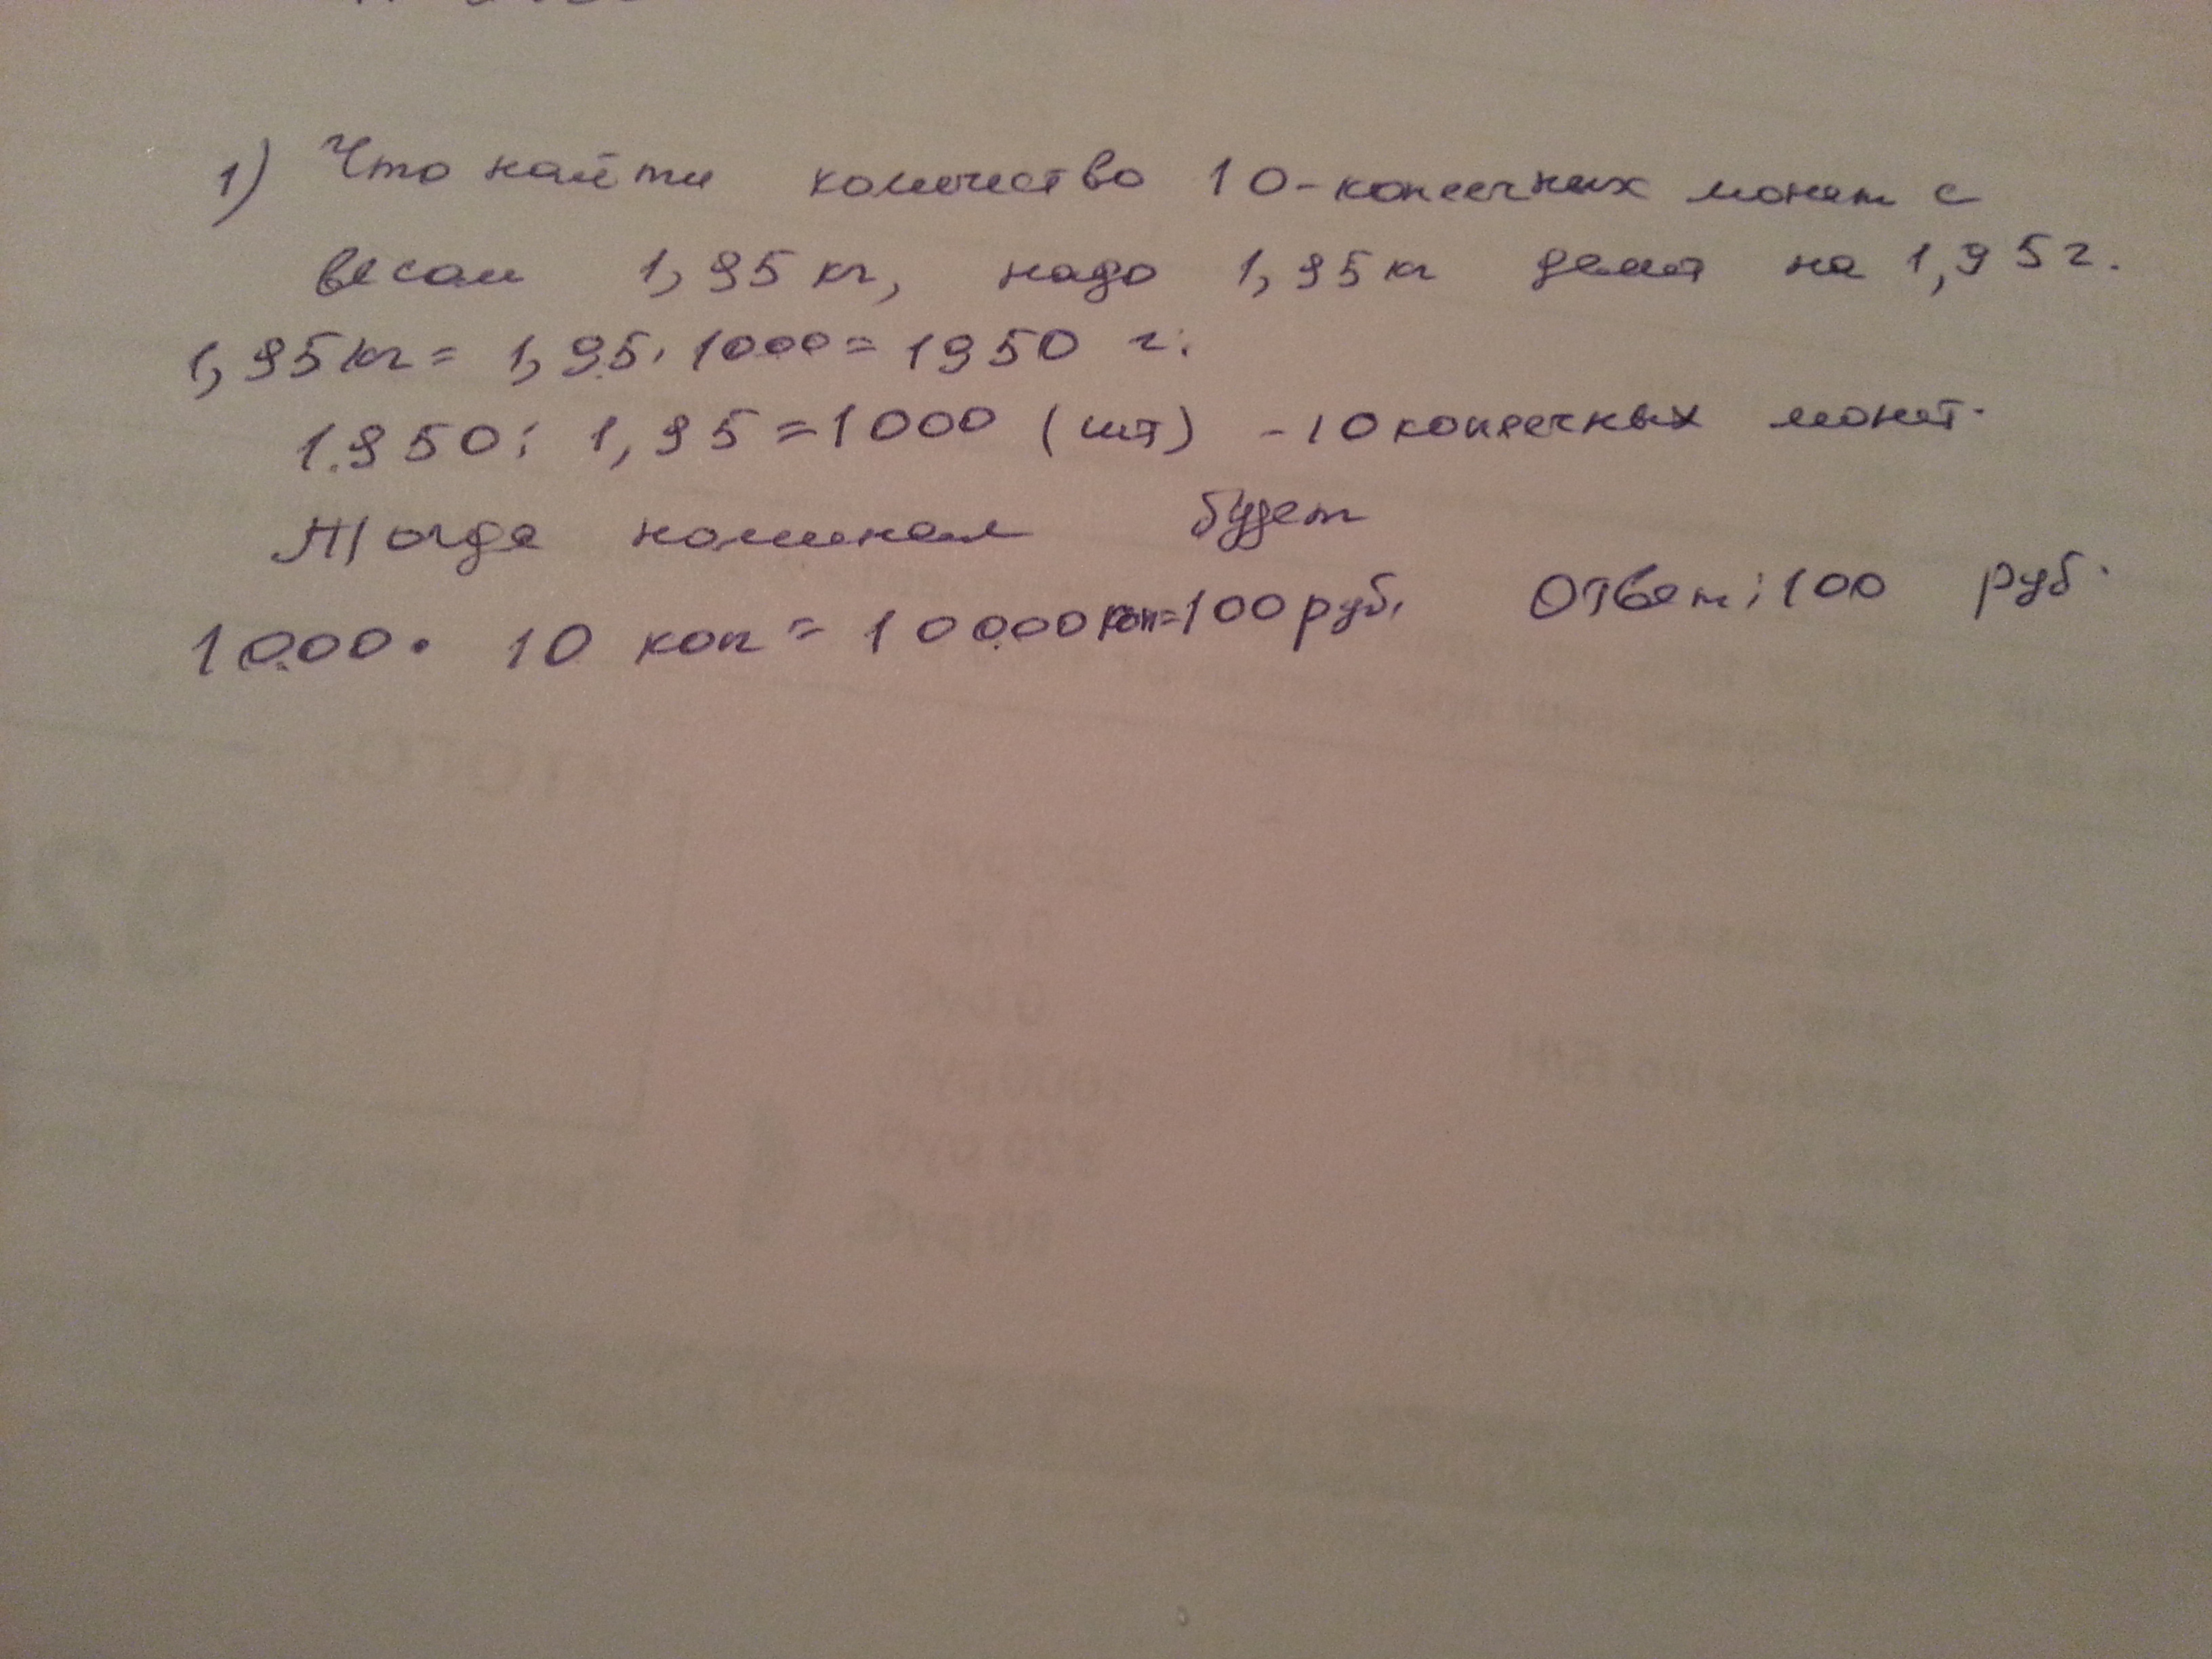 1) Что найти количество 10-копеечных монет с
весом 1,95 кг, надо 1,95 кг делит на 1,95 г.
1,95 кг = 1,95 · 1000 = 1950 г.
1950 : 1,95 = 1000 (шт) - 10 копеечных монет.
Тогда номинал будет
1000 · 10 коп = 10000 коп = 100 руб. Ответ: 100 руб.